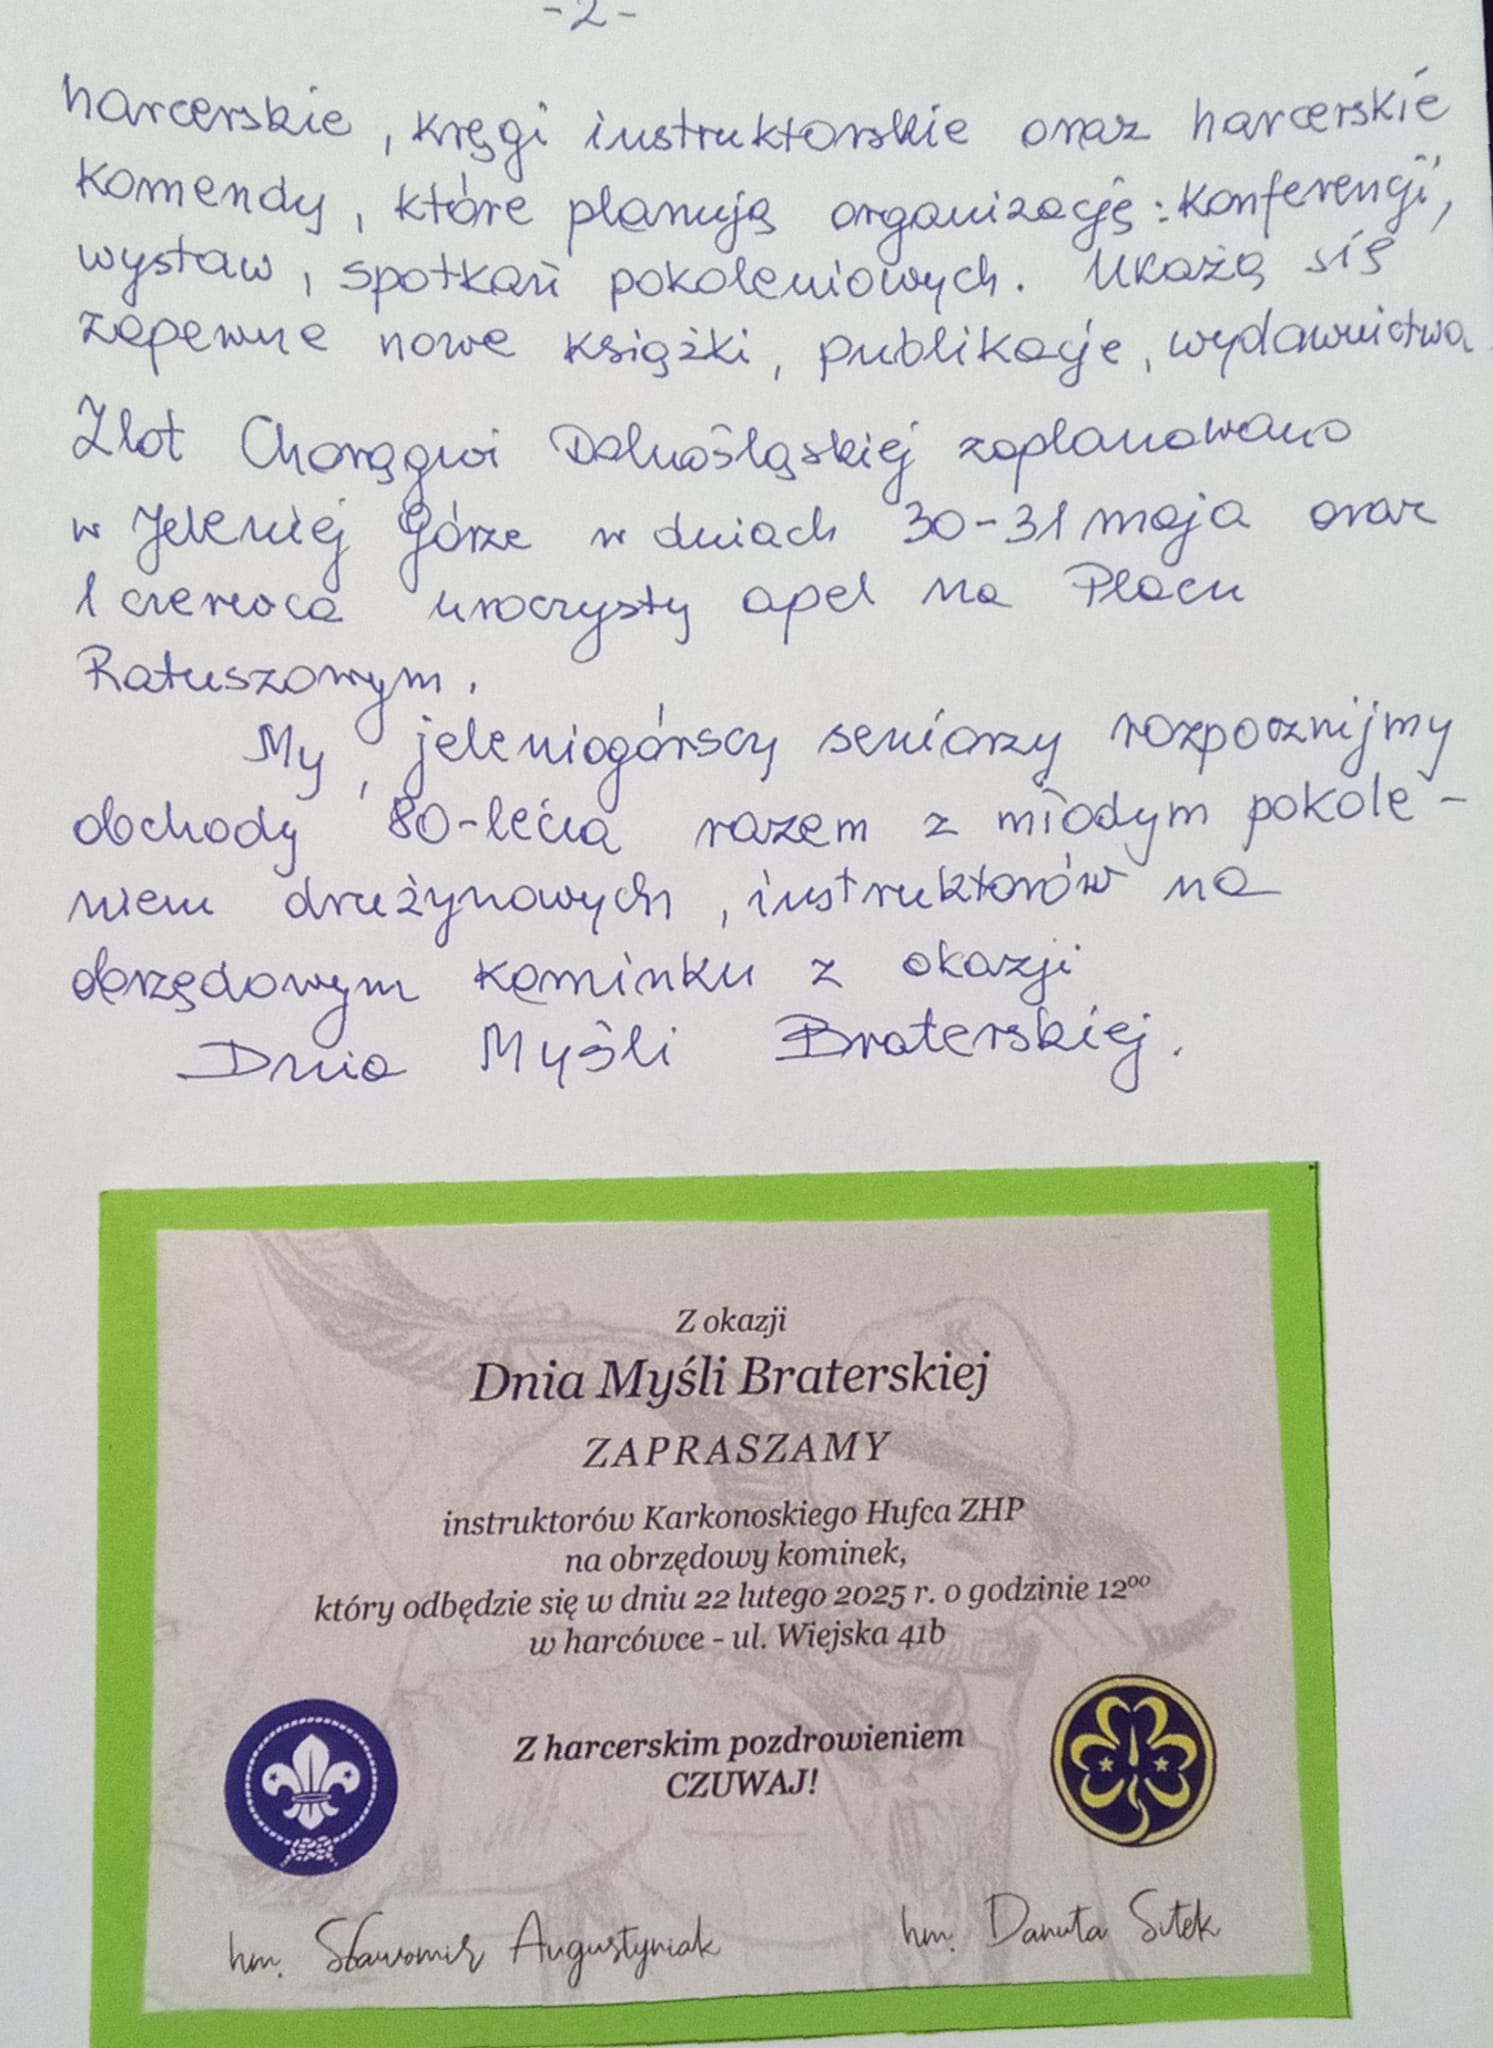 - 2 -
harcerskie, kręgi instruktorskie oraz harcerskie
komendy, które planują organizację: konferencji,
wystaw, spotkań pokoleniowych. Ukażą się
zapewne nowe książki, publikacje, wydawnictwa.
Zlot Chorągwi Dolnośląskiej zaplanowano
w Jeleniej Górze w dniach 30-31 maja oraz
1 czerwca uroczysty apel na Placu
Ratuszowym.
My, jeleniogórscy seniorzy rozpocznijmy
obchody 80-lecia razem z młodym pokole-
niem drużynowych, instruktorów na
obrzędowym kominku z okazji
Dnia Myśli Braterskiej.
Z okazji
Dnia Myśli Braterskiej
ZAPRASZAMY
instruktorów Karkonoskiego Hufca ZHP
na obrzędowy kominek,
który odbędzie się w dniu 22 lutego 2025 r. o godzinie 12⁰⁰
w harcówce - ul. Wiejska 41b
Z harcerskim pozdrowieniem
CZUWAJ!
hm. Sławomir Augustyniak
hm. Danuta Sitek